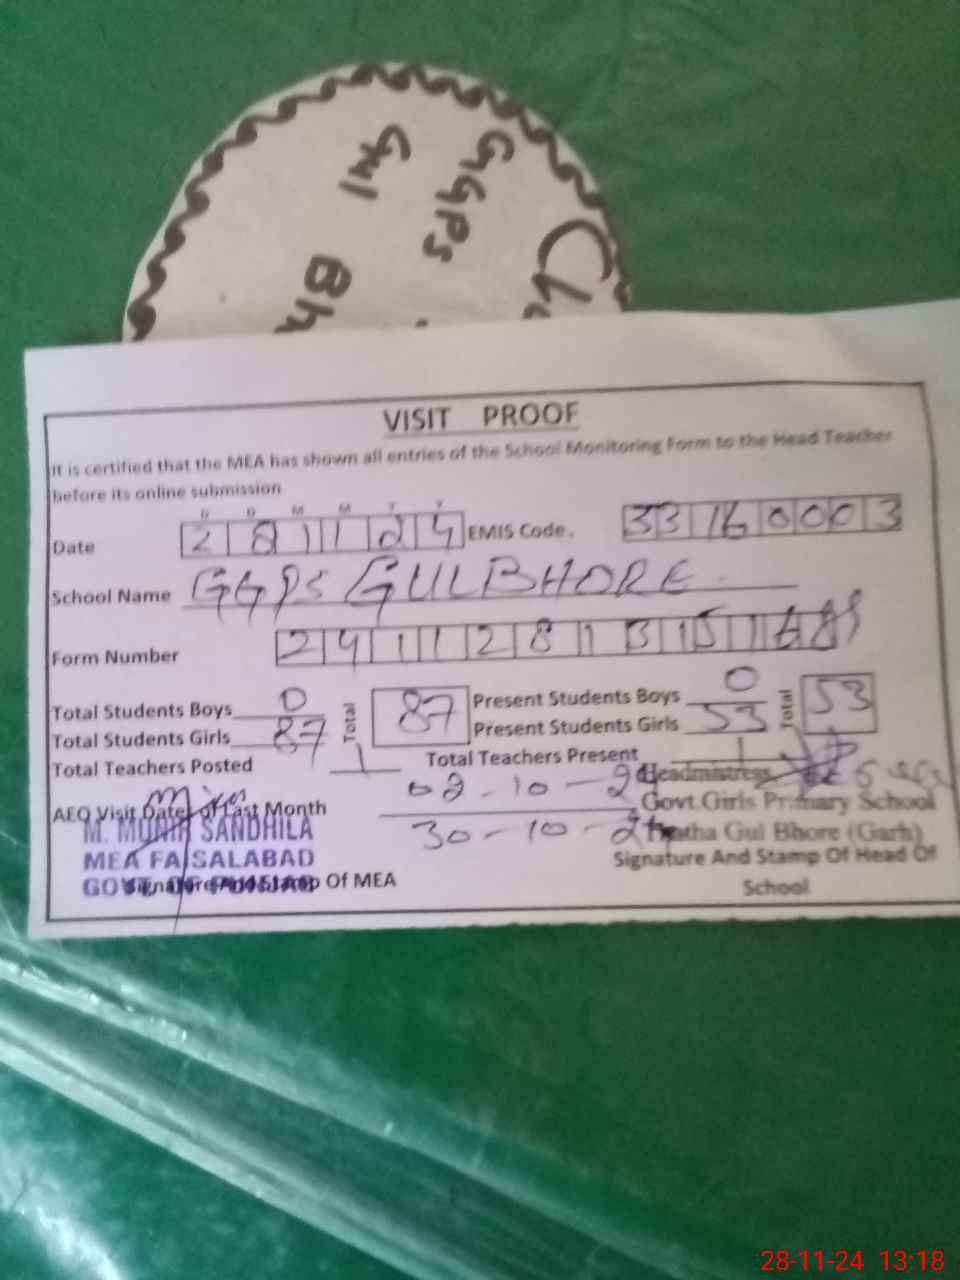 GGPS
Gul
VISIT PROOF
It is certified that the MEA has shown all entries of the School Monitoring Form to the Head Teacher
before its online submission
D D M M Y Y
Date 2 8 1 1 2 4 EMIS Code. 3 3 1 6 0 0 0 3
School Name GGPS GULBHORE
Form Number 2 4 1 1 2 8 1 3 1 5 1
Total Students Boys 0 Total 87 Present Students Boys 0 Total 53
Total Students Girls 87 Present Students Girls 53
Total Teachers Posted 1 Total Teachers Present 1
Headmistress
AEO Visit Date of Last Month 02-10-2 Govt.Girls Primary School
M. MUNIR SANDHILA 30-10-2 Gul Bhore (Garh)
MEA FAISALABAD Signature And Stamp Of Head Of
School
GOVT OF PUNJAB Signature And Stamp Of MEA
28-11-24 13:18